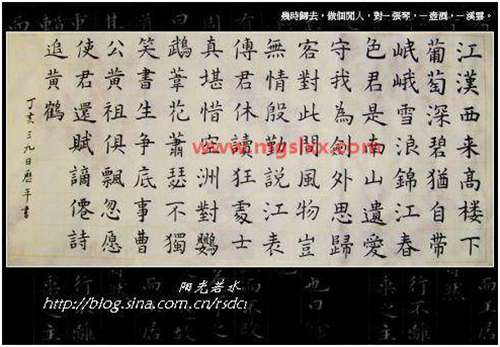 幾時歸去，做個閒人，對一張琴，一壺酒，一溪雲。
江漢西来髙楼下
葡萄深碧猶自帶
岷峨雪浪錦江春
色君是南山遺愛
守我為劍外思歸
客對此間風物豈
無情殷勤說江表
傳君休讀狂處士
真堪惜空洲對鸚
鵡葦花蕭瑟不獨
笑書生争底事曹
公黄祖俱飄忽愿
使君還賦謫僊詩
追黄鶴
丁亥三九日曆年書
阳光若水
http://blog.sina.com.cn/rsdcl